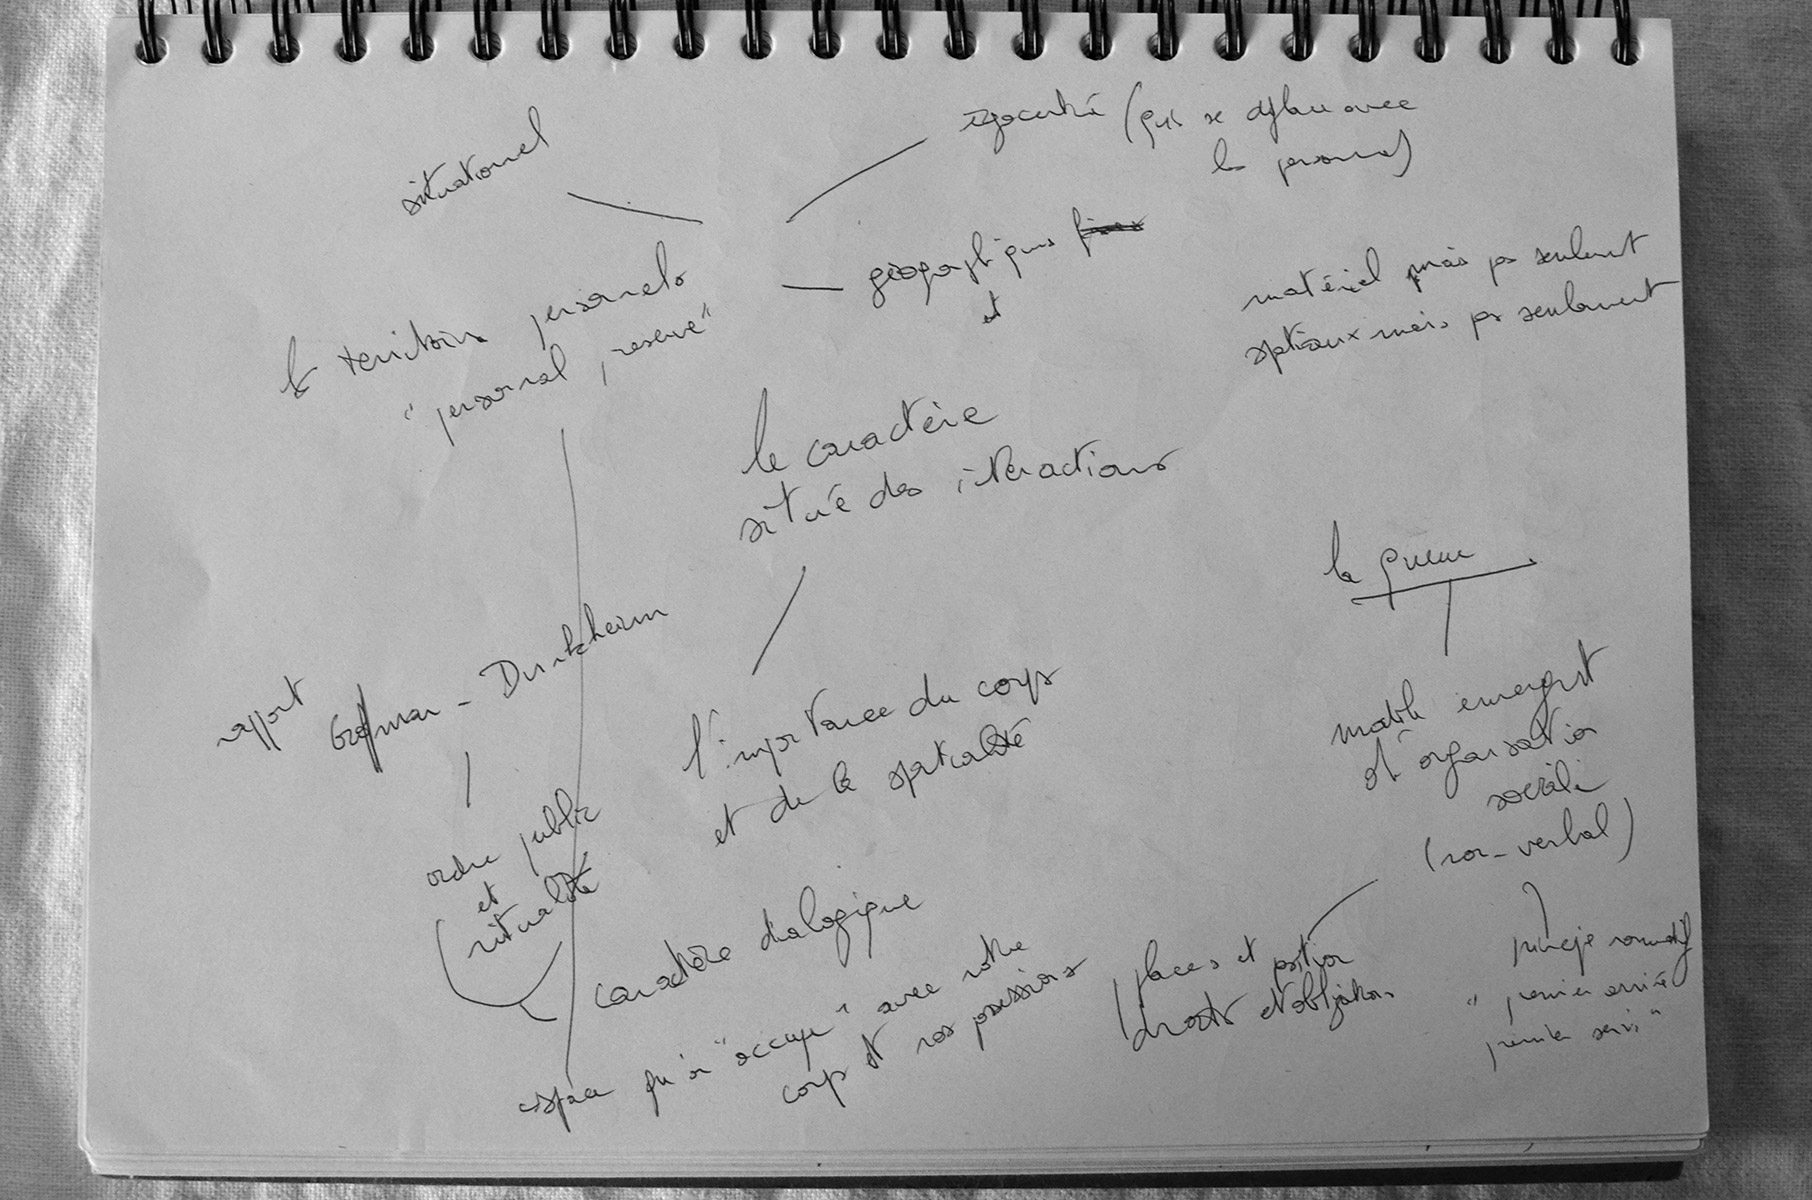 situationel
égocentré (qui se déplace avec
la personne)
géographiques
et
matériel mais pas seulement
spatiaux mais pas seulement
les territoires personels
"personal reserve"
le caractère
située des interactions
la queue
rapport Goffman - Durkheim
l'importance du corps
et de la spatialité
modèle emergent
d'organisation
sociale
(non-verbal)
ordre public
et
ritualité
caractère dialogique
espace qu'on "occupe" avec notre
corps et nos possessions
places et position
droits et obligations
principe normatif
"premier arrivé
premier servi"